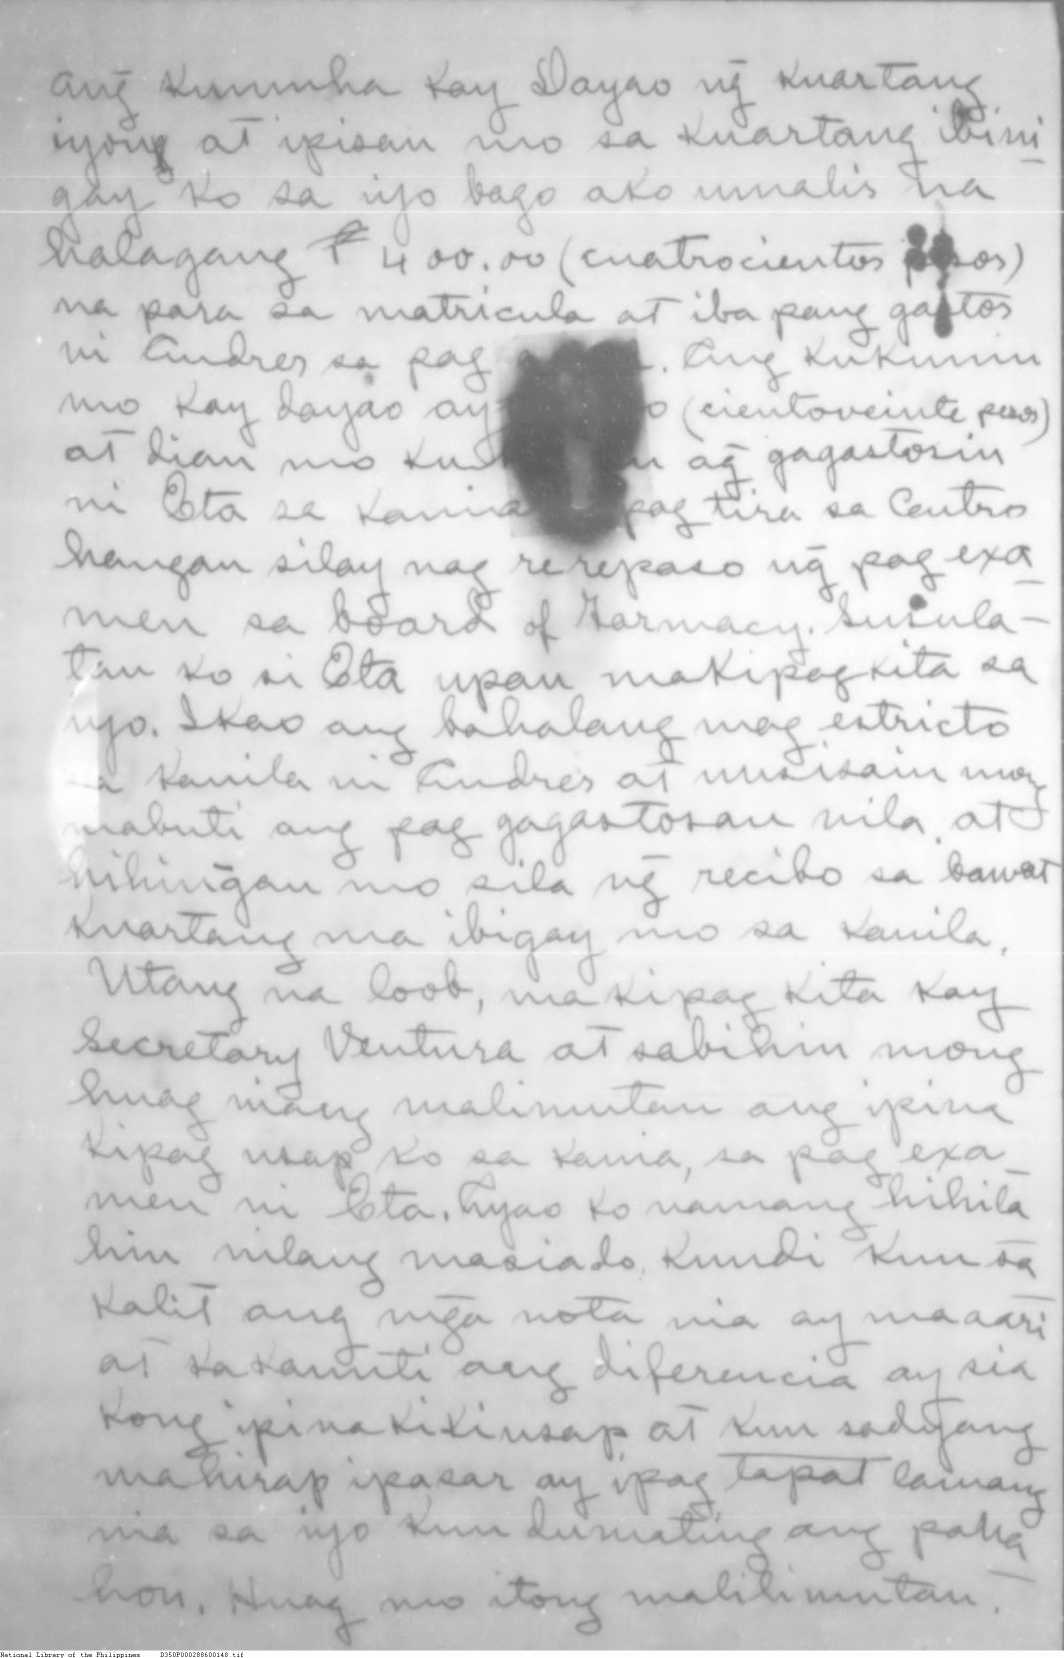 ang̃ kumuha kay Dayao ng̃ kuartang
iyong at ipisan mo sa kuartang ibini
gay ko sa iyo bago ako umalis na
halagang ₱ 400.00 (cuatrocientos pesos)
na para sa matricula at iba pang gastos
ni Andres sa pag . Ang kukunin
mo kay Dayao ay (cientoveinte pesos)
at dian mo ag̃ gagastosin
ni Eta sa pag tira sa Centro
hangan silay nag rerepaso ng̃ pag exa-
men sa board of Farmacy. Susula-
tan ko si Eta upan makipagkita sa
iyo. Ikao ang bahalang mag estricto
sa kanila ni Andres at uusisain mong
mabuti ang pag gagastosan nila at
hihing̃an mo sila ng̃ recibo sa bawat
kuartang ma ibigay mo sa kanila.
Utang na loob, makipag kita kay
Secretary Ventura at sabihin mong
huag niang malimutan ang ipina
kipag usap ko sa kania, sa pag exa-
men ni Eta. Ayao ko namang hihila
hin nilang masiado kundi kun sa
kalit ang mg̃a nota nia ay maaari
at kakaunti ang diferencia ay sia
kong ipinakikiusap at kun sadyang
mahirap ipasar ay ipag tapat lamang
nia sa iyo kun dumating ang pana-
hon. Huag mo itong malilimutan.
National Library of the Philippines D350P000288600148.tif